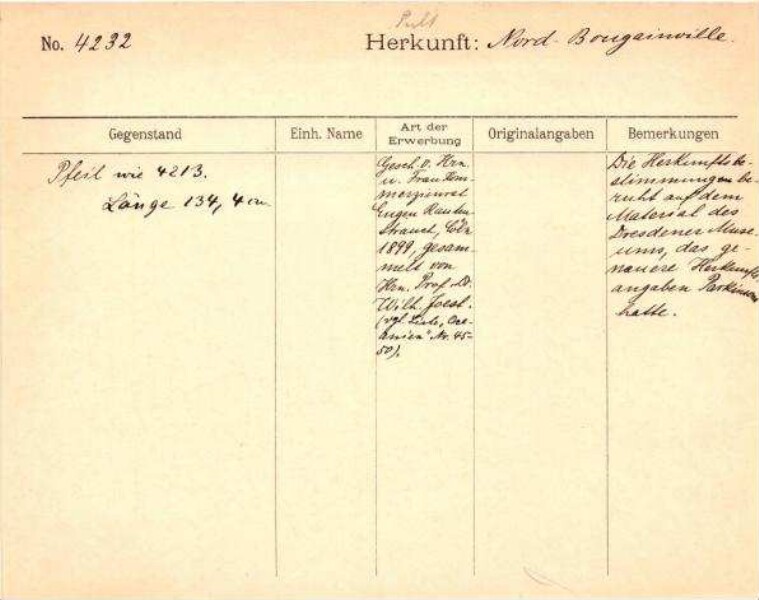 Pult
No. 4232
Herkunft: Nord-Bougainville.
Gegenstand
Einh. Name
Art der
Erwerbung
Originalangaben
Bemerkungen
Pfeil wie 4213.
Länge 134,4 cm
Gesch. v. Hrn.
u. Frau Kom-
merzienrat
Eugen Rauten-
strauch, Cöln
1899, gesam-
melt von
Hrn. Prof. Dr.
Wilh. Joest.
(vgl. Liste „Oce-
anien" Nr. 45-
50).
Die Herkunftsbe-
stimmungen be-
ruht auf dem
Material des
Dresdener Muse-
ums, das ge-
nauere Herkunfts-
angaben Parkinsons
hatte.